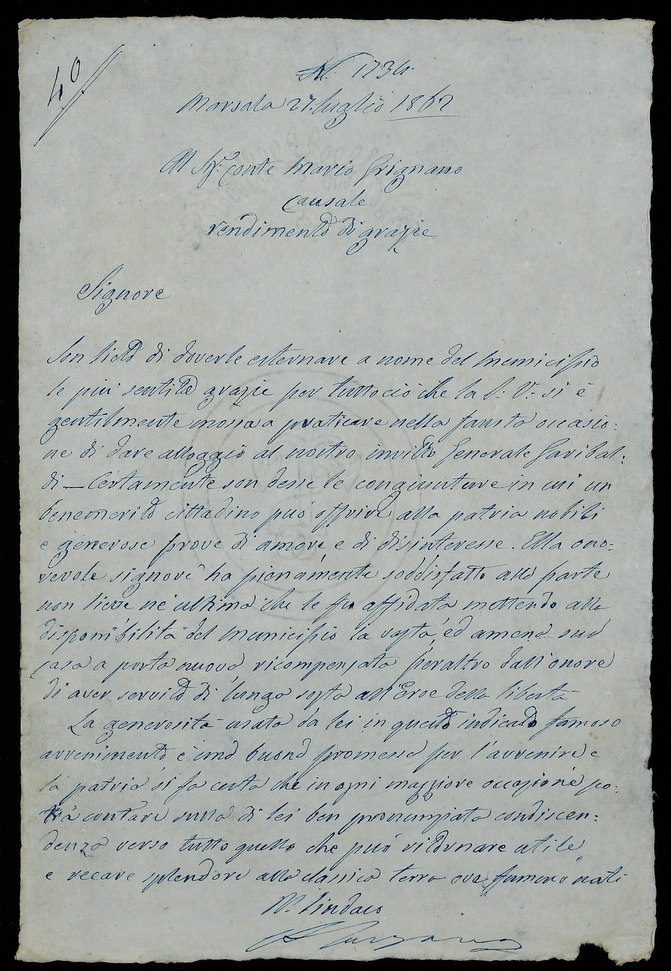 40
N. 1734.
Marsala 27. luglio 1862
Al Sig.r Conte Mario Grignano
Causale
rendimento di grazie
Signore
Son lieto di doverle esternare a nome del Municipio
le più sentite grazie per tutto ciò che la S. V. si è
gentilmente mossa a praticare nella fausta occasio:
ne di dare alloggio al nostro invitto Generale Garibal:
di — Certamente son desse le congiunture in cui un
benemerito cittadino può offrire alla patria nobili
e generose prove di amore, e di disinteresse. Ella ono:
revole signore ha pienamente soddisfatto alla parte
non lieve né ultima che le fu affidata mettendo alla
disponibilità del municipio la vasta ed amena sua
casa a porta nuova ricompensata peraltro dall'onore
di aver servito di luogo sosta all'Eroe della libertà
La generosità usata da lei in questo indicato famoso
avvenimento è una buona promessa per l'avvenire e
la patria si fa certa che in ogni maggiore occasione po:
trà contare sulla di lei ben pronunziata condiscen:
denza verso tutto quello che può ritornare utile
e recare splendore alla classica terra ove fummo nati
Il Sindaco